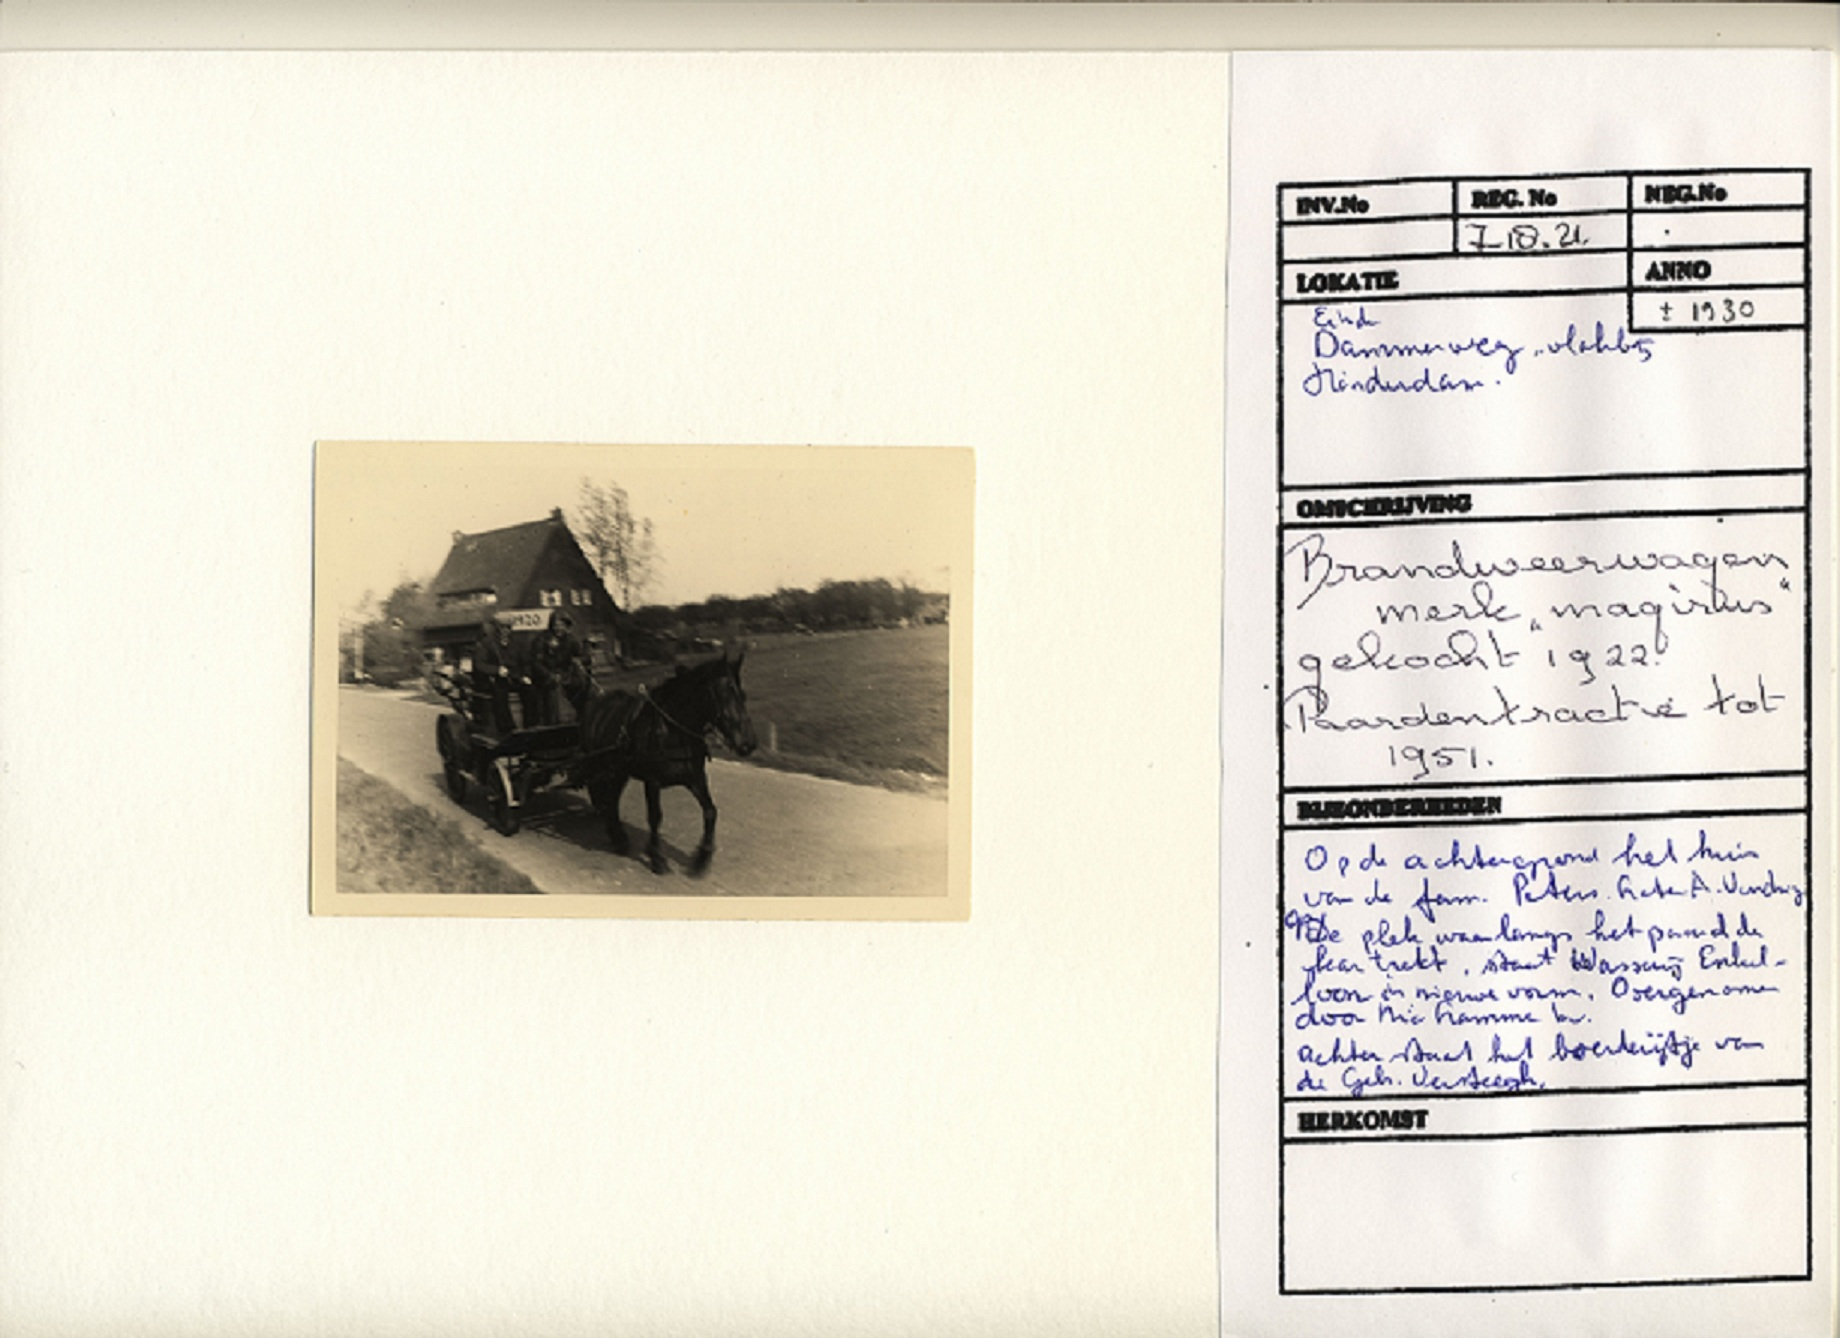 1920
INV.No REG. No NEG.No
7-18.21.
LOKATIE ANNO
± 1930
Einde
Dammerweg, vlakbij
Hinderdam.
OMSCHRIJVING
Brandweerwagen
merk „magirus“
gekocht 1922.
Paardentractie tot
1951.
BIJZONDERHEDEN
Op de achtergrond het huis
van de fam. Peters.
de plek waarlangs het paard de
kar trekt, staat Wasserij Enkel-
loon in nieuwe vorm. Overgenomen
door
achter staat het boerderijtje van
de Gebr. Versteegh.
HERKOMST